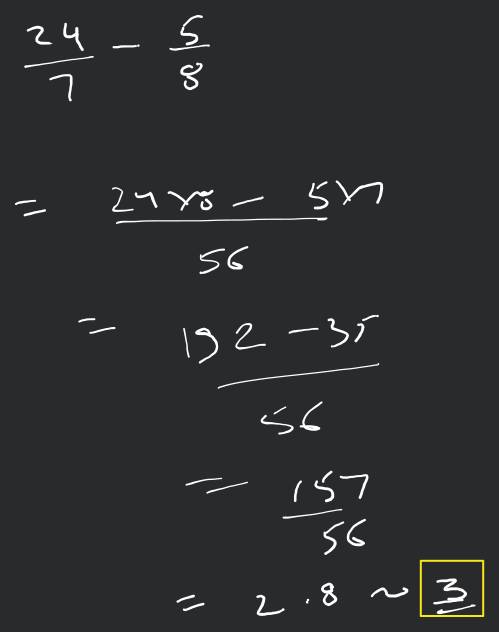 24/7 - 5/8
= (24×8 - 5×7)/56
= (192 - 35)/56
= 157/56
= 2.8 ~ 3